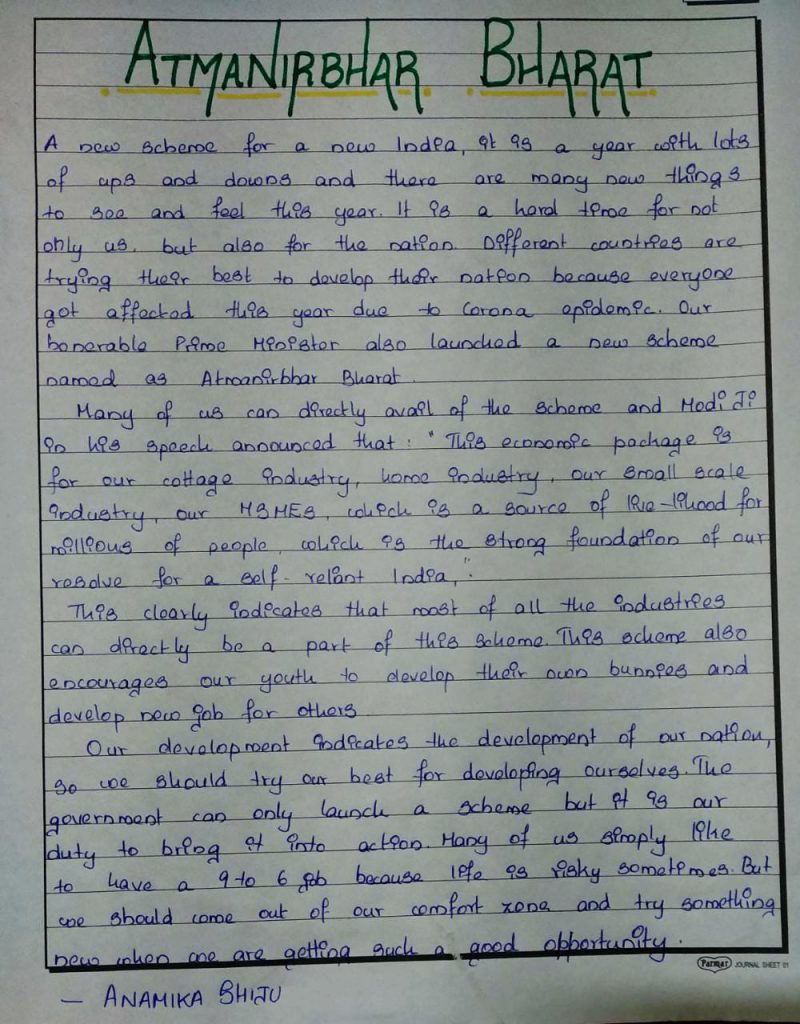 ATMANIRBHAR BHARAT
A new scheme for a new India, it is a year with lots
of ups and downs and there are many new things
to see and feel this year. It is a hard time for not
only us, but also for the nation. Different countries are
trying their best to develop their nation because everyone
got affected this year due to Corona epidemic. Our
honerable Prime Minister also launched a new scheme
named as Atmanirbhar Bharat.
Many of us can directly avail of the scheme and Modi Ji
in his speech announced that: "This economic package is
for our cottage industry, home industry, our small scale
industry, our MSMEs, which is a source of live-lihood for
millions of people, which is the strong foundation of our
resolve for a self-reliant India,".
This clearly indicates that most of all the industries
can directly be a part of this scheme. This scheme also
encourages our youth to develop their own bunnies and
develop new job for others
Our development indicates the development of our nation,
so we should try our best for developing ourselves. The
government can only launch a scheme but it is our
duty to bring it into action. Many of us simply like
to have a 9 to 6 job because life is risky sometimes. But
we should come out of our comfort zone and try something
new when we are getting such a good opportunity.
Parmar JOURNAL SHEET 01
- ANAMIKA BHIJU